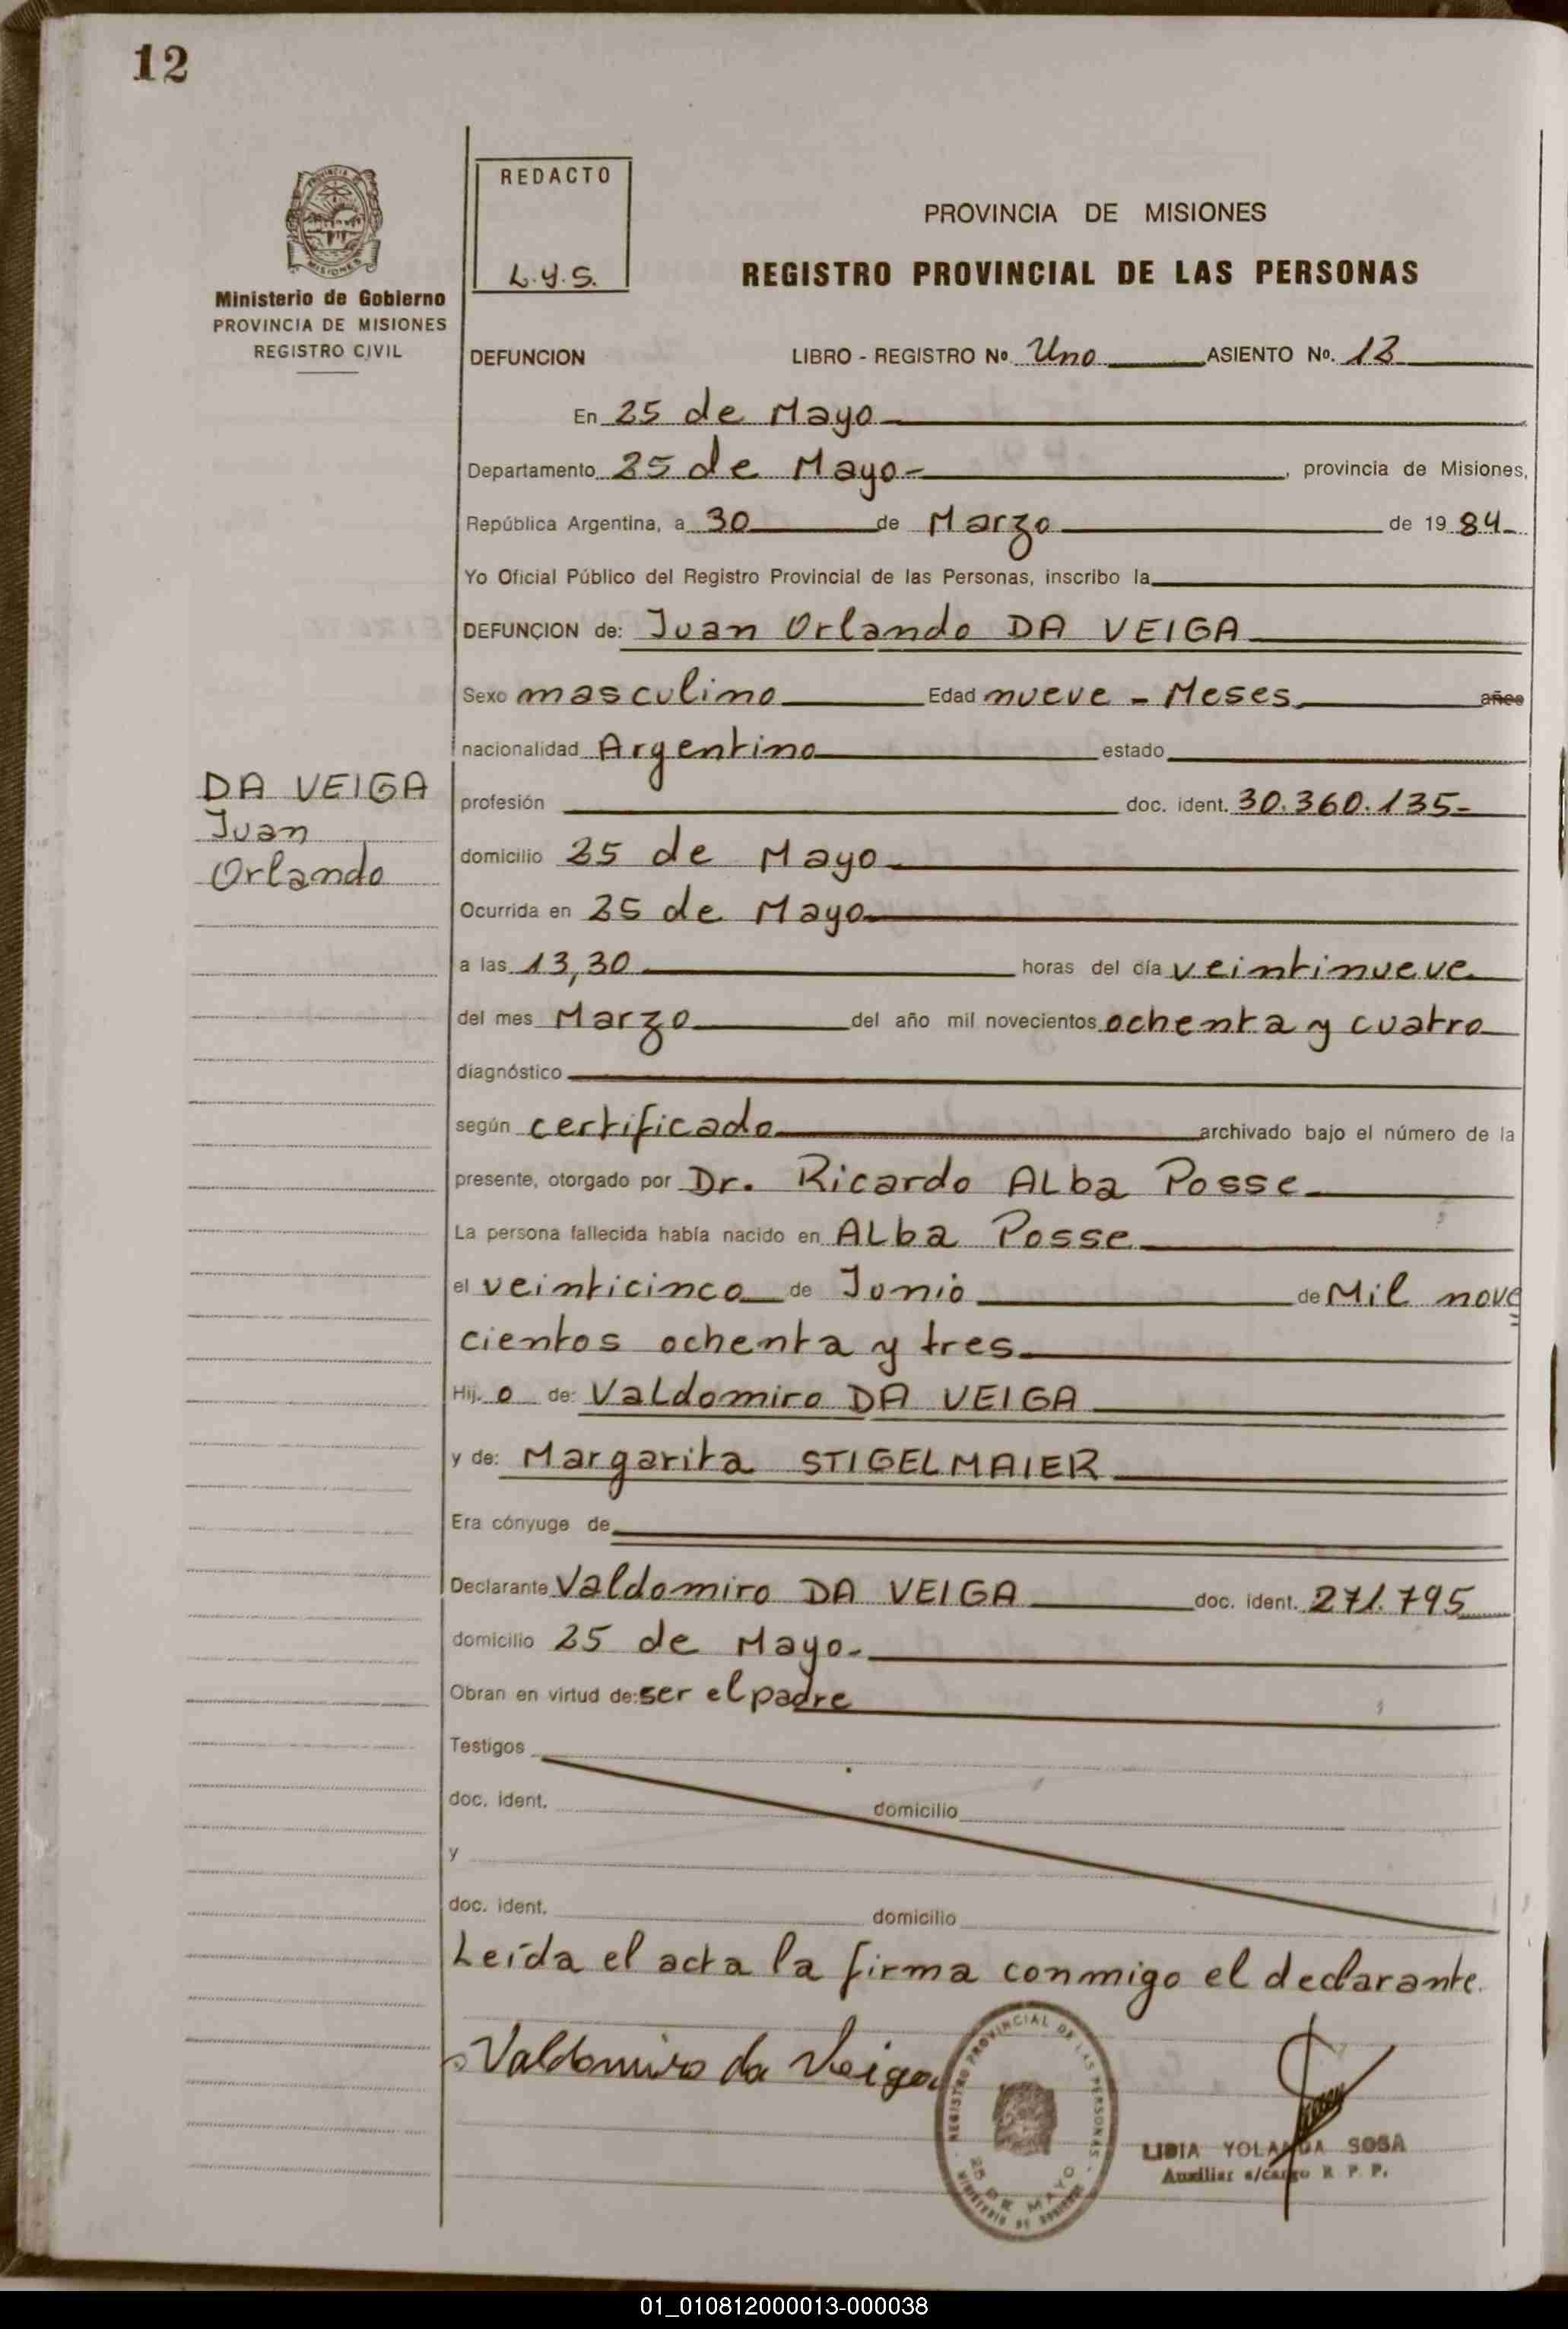 12
PROVINCIA DE MISIONES
Ministerio de Gobierno
PROVINCIA DE MISIONES
REGISTRO CIVIL
REDACTO
L.Y.S.
PROVINCIA DE MISIONES
REGISTRO PROVINCIAL DE LAS PERSONAS
DEFUNCION LIBRO - REGISTRO Nº Uno ASIENTO No. 12
En 25 de Mayo
Departamento 25 de Mayo-, provincia de Misiones,
República Argentina, a 30 de Marzo de 19 84-
Yo Oficial Público del Registro Provincial de las Personas, inscribo la
DEFUNCION de: Juan Orlando DA VEIGA
Sexo masculino Edad nueve - Meses años
nacionalidad Argentino estado
DA VEIGA
Juan
Orlando
profesión doc. ident. 30.360.135-
domicilio 25 de Mayo
Ocurrida en 25 de Mayo
a las 13,30 horas del día veintinueve
del mes Marzo del año mil novecientos ochenta y cuatro
diagnóstico
según certificado archivado bajo el número de la
presente, otorgado por Dr. Ricardo ALba Posse
La persona fallecida había nacido en ALba Posse
el veinticinco de Junio de Mil nove
cientos ochenta y tres
Hij o de: VaLdomiro DA VEIGA
y de: Margarita STIGELMAIER
Era cónyuge de
Declarante Valdomiro DA VEIGA doc. ident. 271.795
domicilio 25 de Mayo-
Obran en virtud de: ser el padre
Testigos
doc. ident. domicilio
y
doc. ident. domicilio
Leída el acta la firma conmigo el declarante.
Valdomiro da Veiga
REGISTRO PROVINCIAL DE LAS PERSONAS
25 DE MAYO
MINISTERIO DE GOBIERNO
LIDIA YOLANDA SOSA
Auxiliar a/cargo R. P. P.
01_010812000013-000038